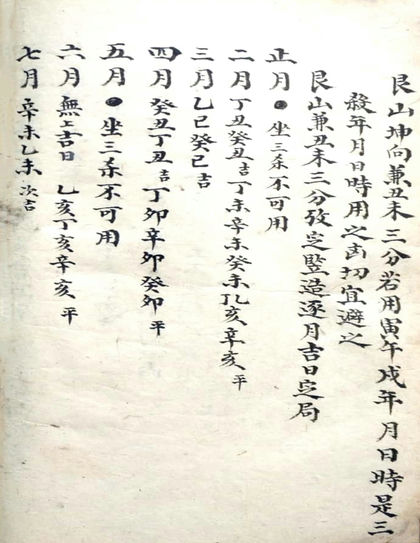 艮山坤向兼丑未三分若用寅午戌年月日時是三
殺年月日時用之凶切宜避之
艮山兼丑未三分攷定豎造逐月吉日定局
正月●坐三杀不可用
二月丁丑癸丑吉丁未辛未癸未乙亥辛亥平
三月乙巳癸巳吉
四月癸丑丁丑吉丁卯辛卯癸卯平
五月●坐三杀不可用
六月無上吉日 乙亥丁亥辛亥平
七月辛未乙未次吉